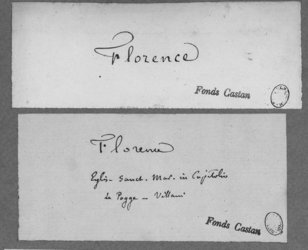 Florence
Fonds Castan
Florence
Eglis. Sanct. Mar. in Capitolio
Le Pogge — Villani
Fonds Castan